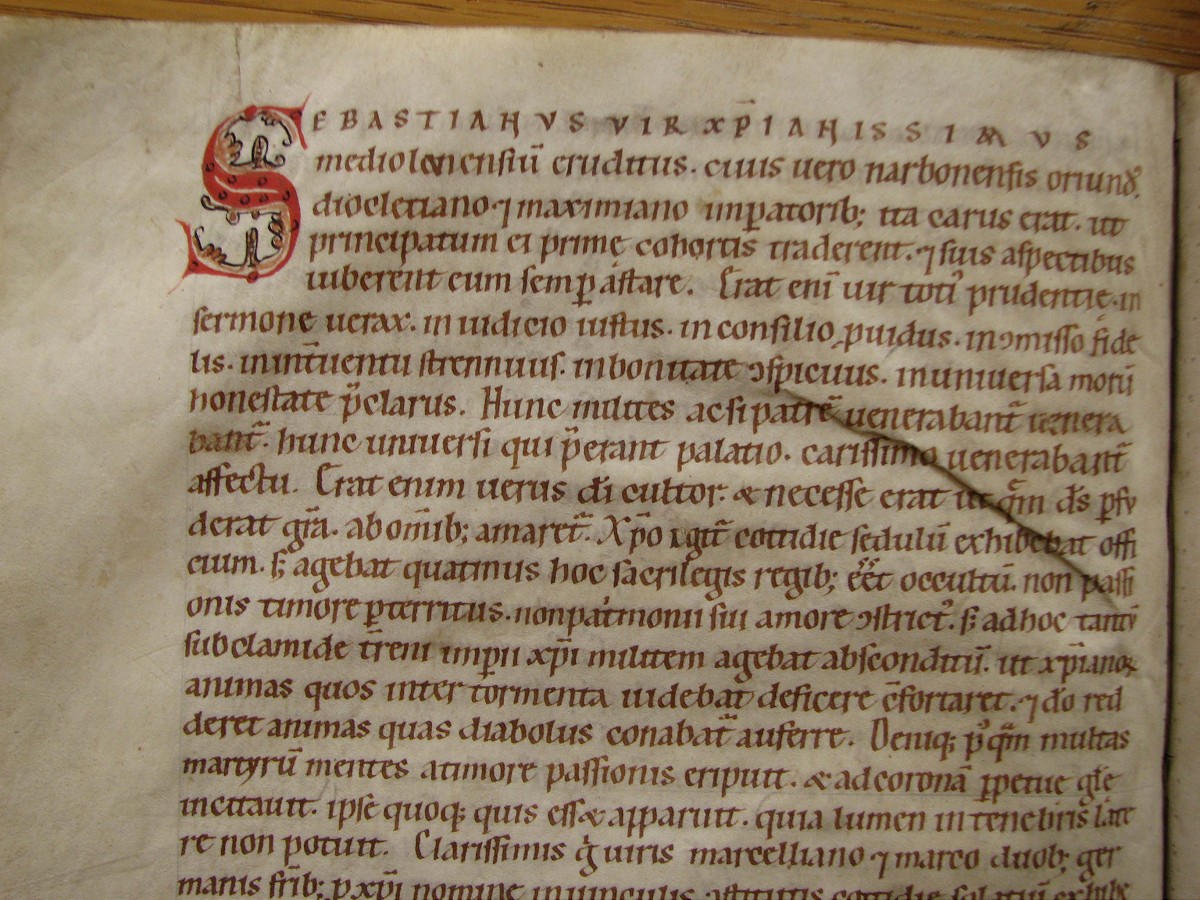 SEBASTIANVS VIR XP̄IANISSIMVS
mediolanensiū eruditus. ciuis uero narbonensis oriund᷒.
diocletiano ⁊ maximiano imꝑatorib; ita carus erat. ut
principatum ei prime̜ cohortis traderent. ⁊ suis aspectibus
iuberent eum semꝑ astare. Erat eni᷒ uir toti᷒ prudentie̜. in
sermone uerax. in iudicio iustus. in consilio ꝓuidus. in ꝯmisso fide
lis. in int̄uentu strennuus. in bonitate ꝯspicuus. in uniuersa morū
honestate p̄clarus. Hunc milites ac si patrē uenerabant᷑ uenera
bant᷑. hunc uniuersi qui p̄erant palatio. carissimo uenerabant᷑
affectu. Erat enim uerus dī cultor. & necesse erat ut q̄m dS̄ ꝑfu
derat gr̄a. ab om̄ib; amaret᷑. Xp̄o igit᷑ cottidie sedulū exhibebat offi
cium. s; agebat quatinus hoc sacrilegis regib; eēt occultū. non passi
onis timore ꝑterritus. non pat̄monii sui amore ꝯstrict᷒. s; ad hoc tantū
sub clamide t̄reni imꝑii xp̄i militem agebat absconditū. ut xp̄ianoꝝ
animas quos inter tormenta uidebat deficere c̄fortaret. ⁊ dō red
deret animas quas diabolus conabat᷑ auferre. Deniq; p᷒q̄m multas
martyrū mentes a timore passionis eripuit. & ad coronā ꝑpetue gl̄e
incitauit. ipse quoq; quis ess& apparuit. quia lumen in tenebris late
re non potuit. Clarissimis g̊ uiris marcelliano ⁊ marco duob; ger
manis fr̄ib; ꝓ xp̄i nomine in uinculis ꝯstitutis cottidie solatiū exhibe